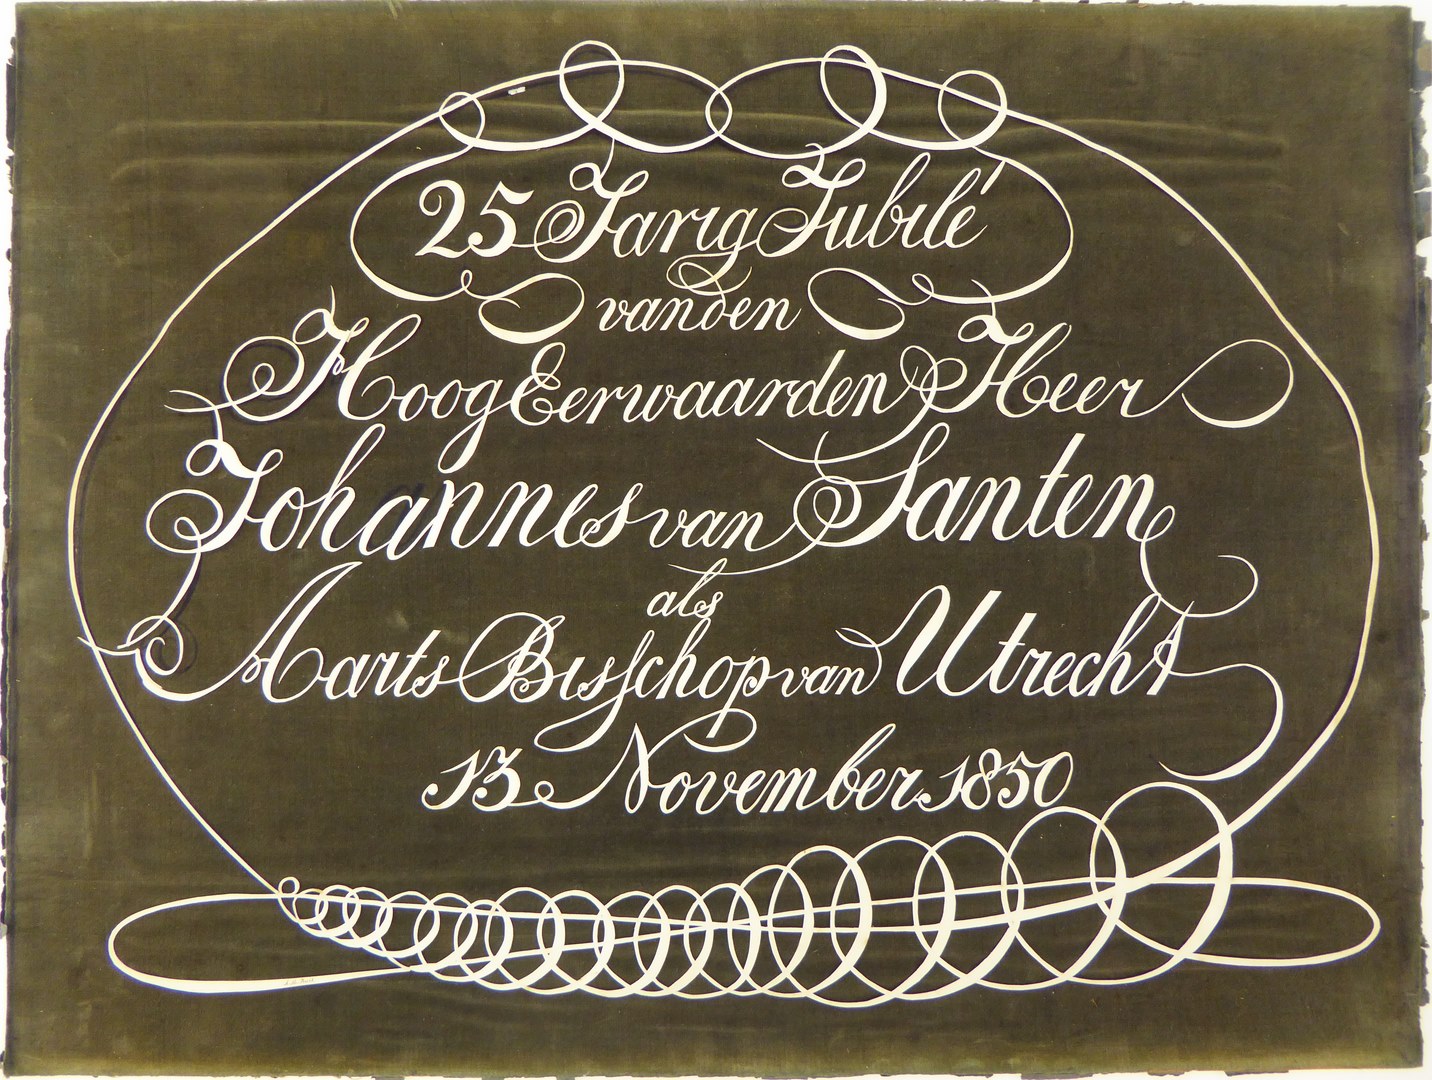 25 Jarig Jubilé
van den
Hoog Eerwaarden Heer
Johannes van Santen
als
Aarts Bisschop van Utrecht
13 November 1850